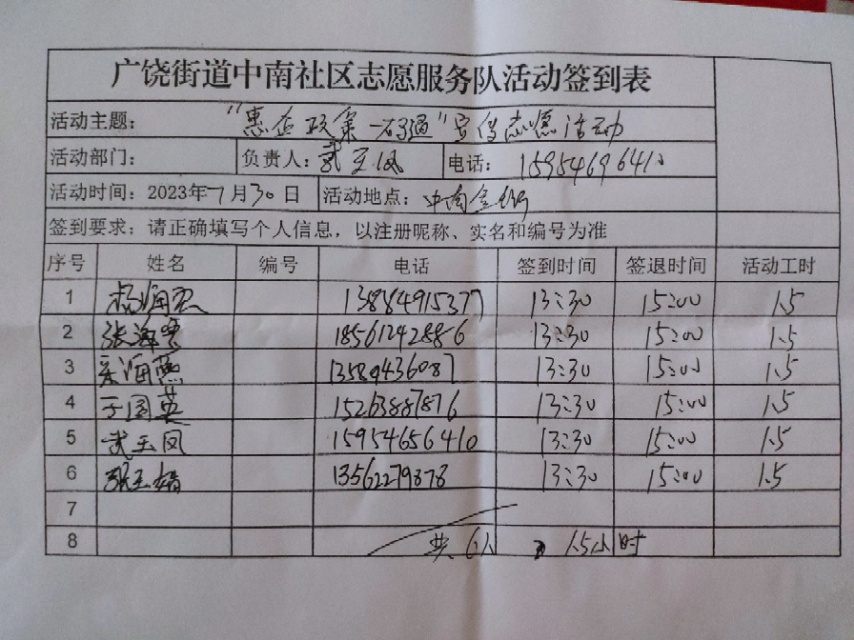 广饶街道中南社区志愿服务队活动签到表
活动主题: "惠企政策一码通"宣传志愿活动
活动部门: 负责人: 武玉凤 电话:
活动时间: 2023年7月30日 活动地点: 中南金
签到要求: 请正确填写个人信息, 以注册昵称、实名和编号为准
序号 姓名 编号 电话 签到时间 签退时间 活动工时
1 13884915377 13:30 15:00 1.5
2 18561242886 13:30 15:00 1.5
3 13589436087 13:30 15:00 1.5
4 于国英 15263887876 13:30 15:00 1.5
5 武玉凤 15954656410 13:30 15:00 1.5
6 张玉娟 13562279878 13:30 15:00 1.5
7
8 共6人 1.5小时